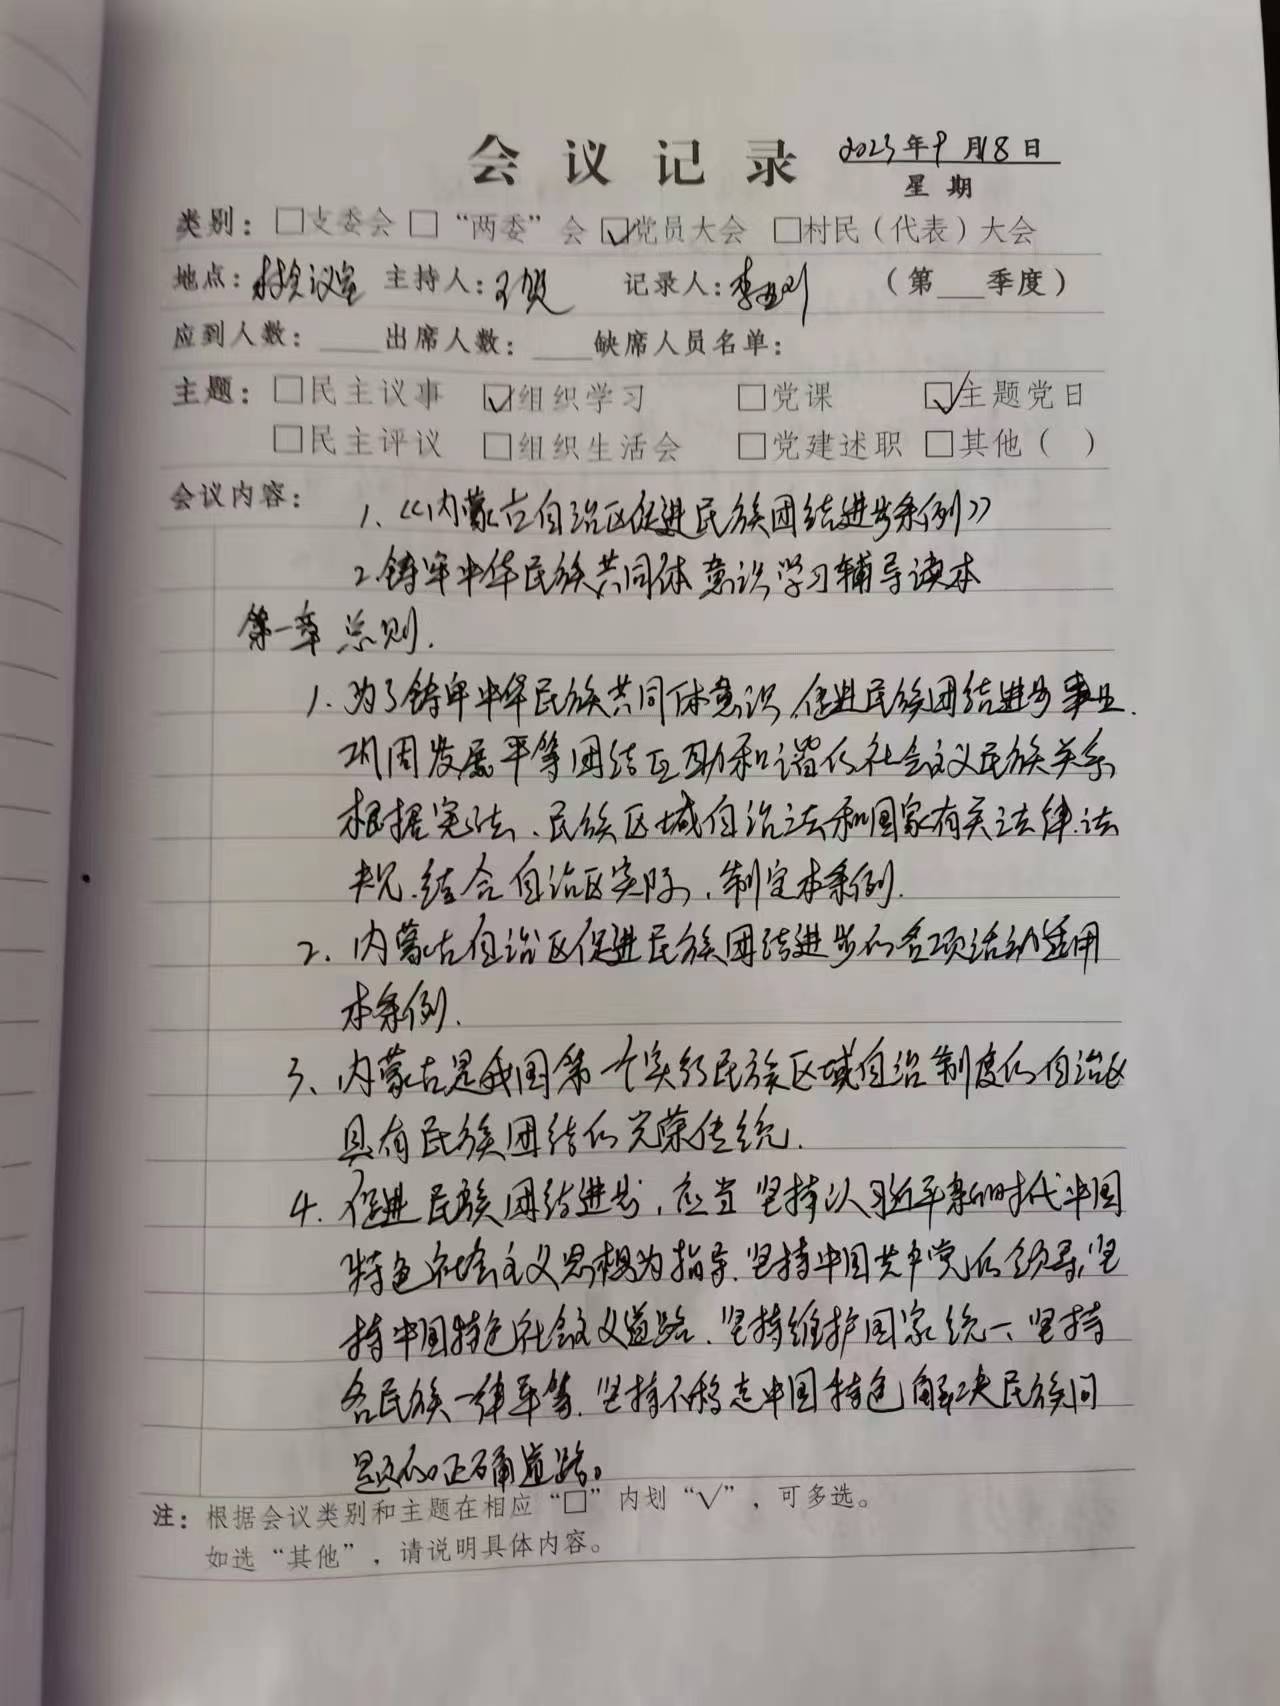 会议记录 2023年9月18日
星期
类别：□支委会 □“两委”会 ☑党员大会 □村民（代表）大会
地点：村会议室 主持人：王贺 记录人：李亚刚 （第___季度）
应到人数：____出席人数：____缺席人员名单：
主题：□民主议事 ☑组织学习 □党课 ☑主题党日
□民主评议 □组织生活会 □党建述职 □其他（ ）
会议内容： 1、《内蒙古自治区促进民族团结进步条例》
2.铸牢中华民族共同体意识学习辅导读本
第一章 总则.
1.为了铸牢中华民族共同体意识,促进民族团结进步事业.
巩固发展平等团结互助和谐的社会主义民族关系
根据宪法、民族区域自治法和国家有关法律.法
规.结合自治区实际,制定本条例.
2.内蒙古自治区促进民族团结进步的各项活动适用
本条例.
3、内蒙古是我国第一个实行民族区域自治制度的自治区
具有民族团结的光荣传统.
4.促进民族团结进步,应当坚持以习近平新时代中国
特色社会主义思想为指导.坚持中国共产党的领导,坚
持中国特色社会主义道路.坚持维护国家统一、坚持
各民族一律平等.坚持不移走中国特色解决民族问
题的正确道路。
注：根据会议类别和主题在相应“□”内划“√”，可多选。
如选“其他”，请说明具体内容。